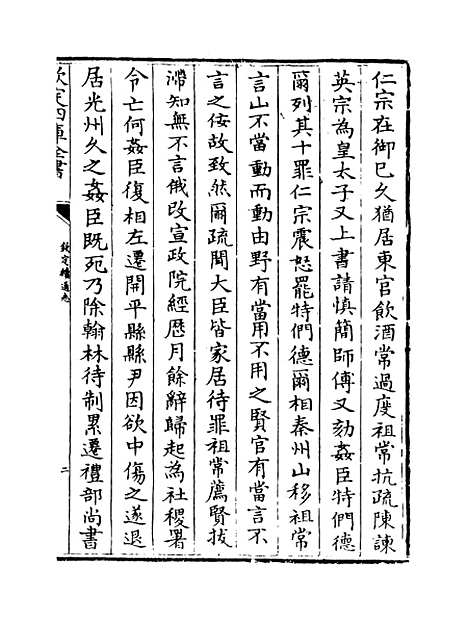 仁宗在御已久猶居東官飲酒常過度祖常抗疏陳諫
英宗為皇太子又上書請慎簡師傅又劾姦臣特們德
爾列其十罪仁宗震怒罷特們德爾相秦州山移祖常
言山不當動而動由野有當用不用之賢官有當言不
言之佞故致然爾疏聞大臣皆家居待罪祖常薦賢拔
滯知無不言俄改宣政院經歴月餘辭歸起為社稷署
令亡何姦臣復相左遷開平縣縣尹因欲中傷之遂退
居光州久之姦臣既死乃除翰林待制累遷禮部尚書
欽定四庫全書
欽定續通志
二